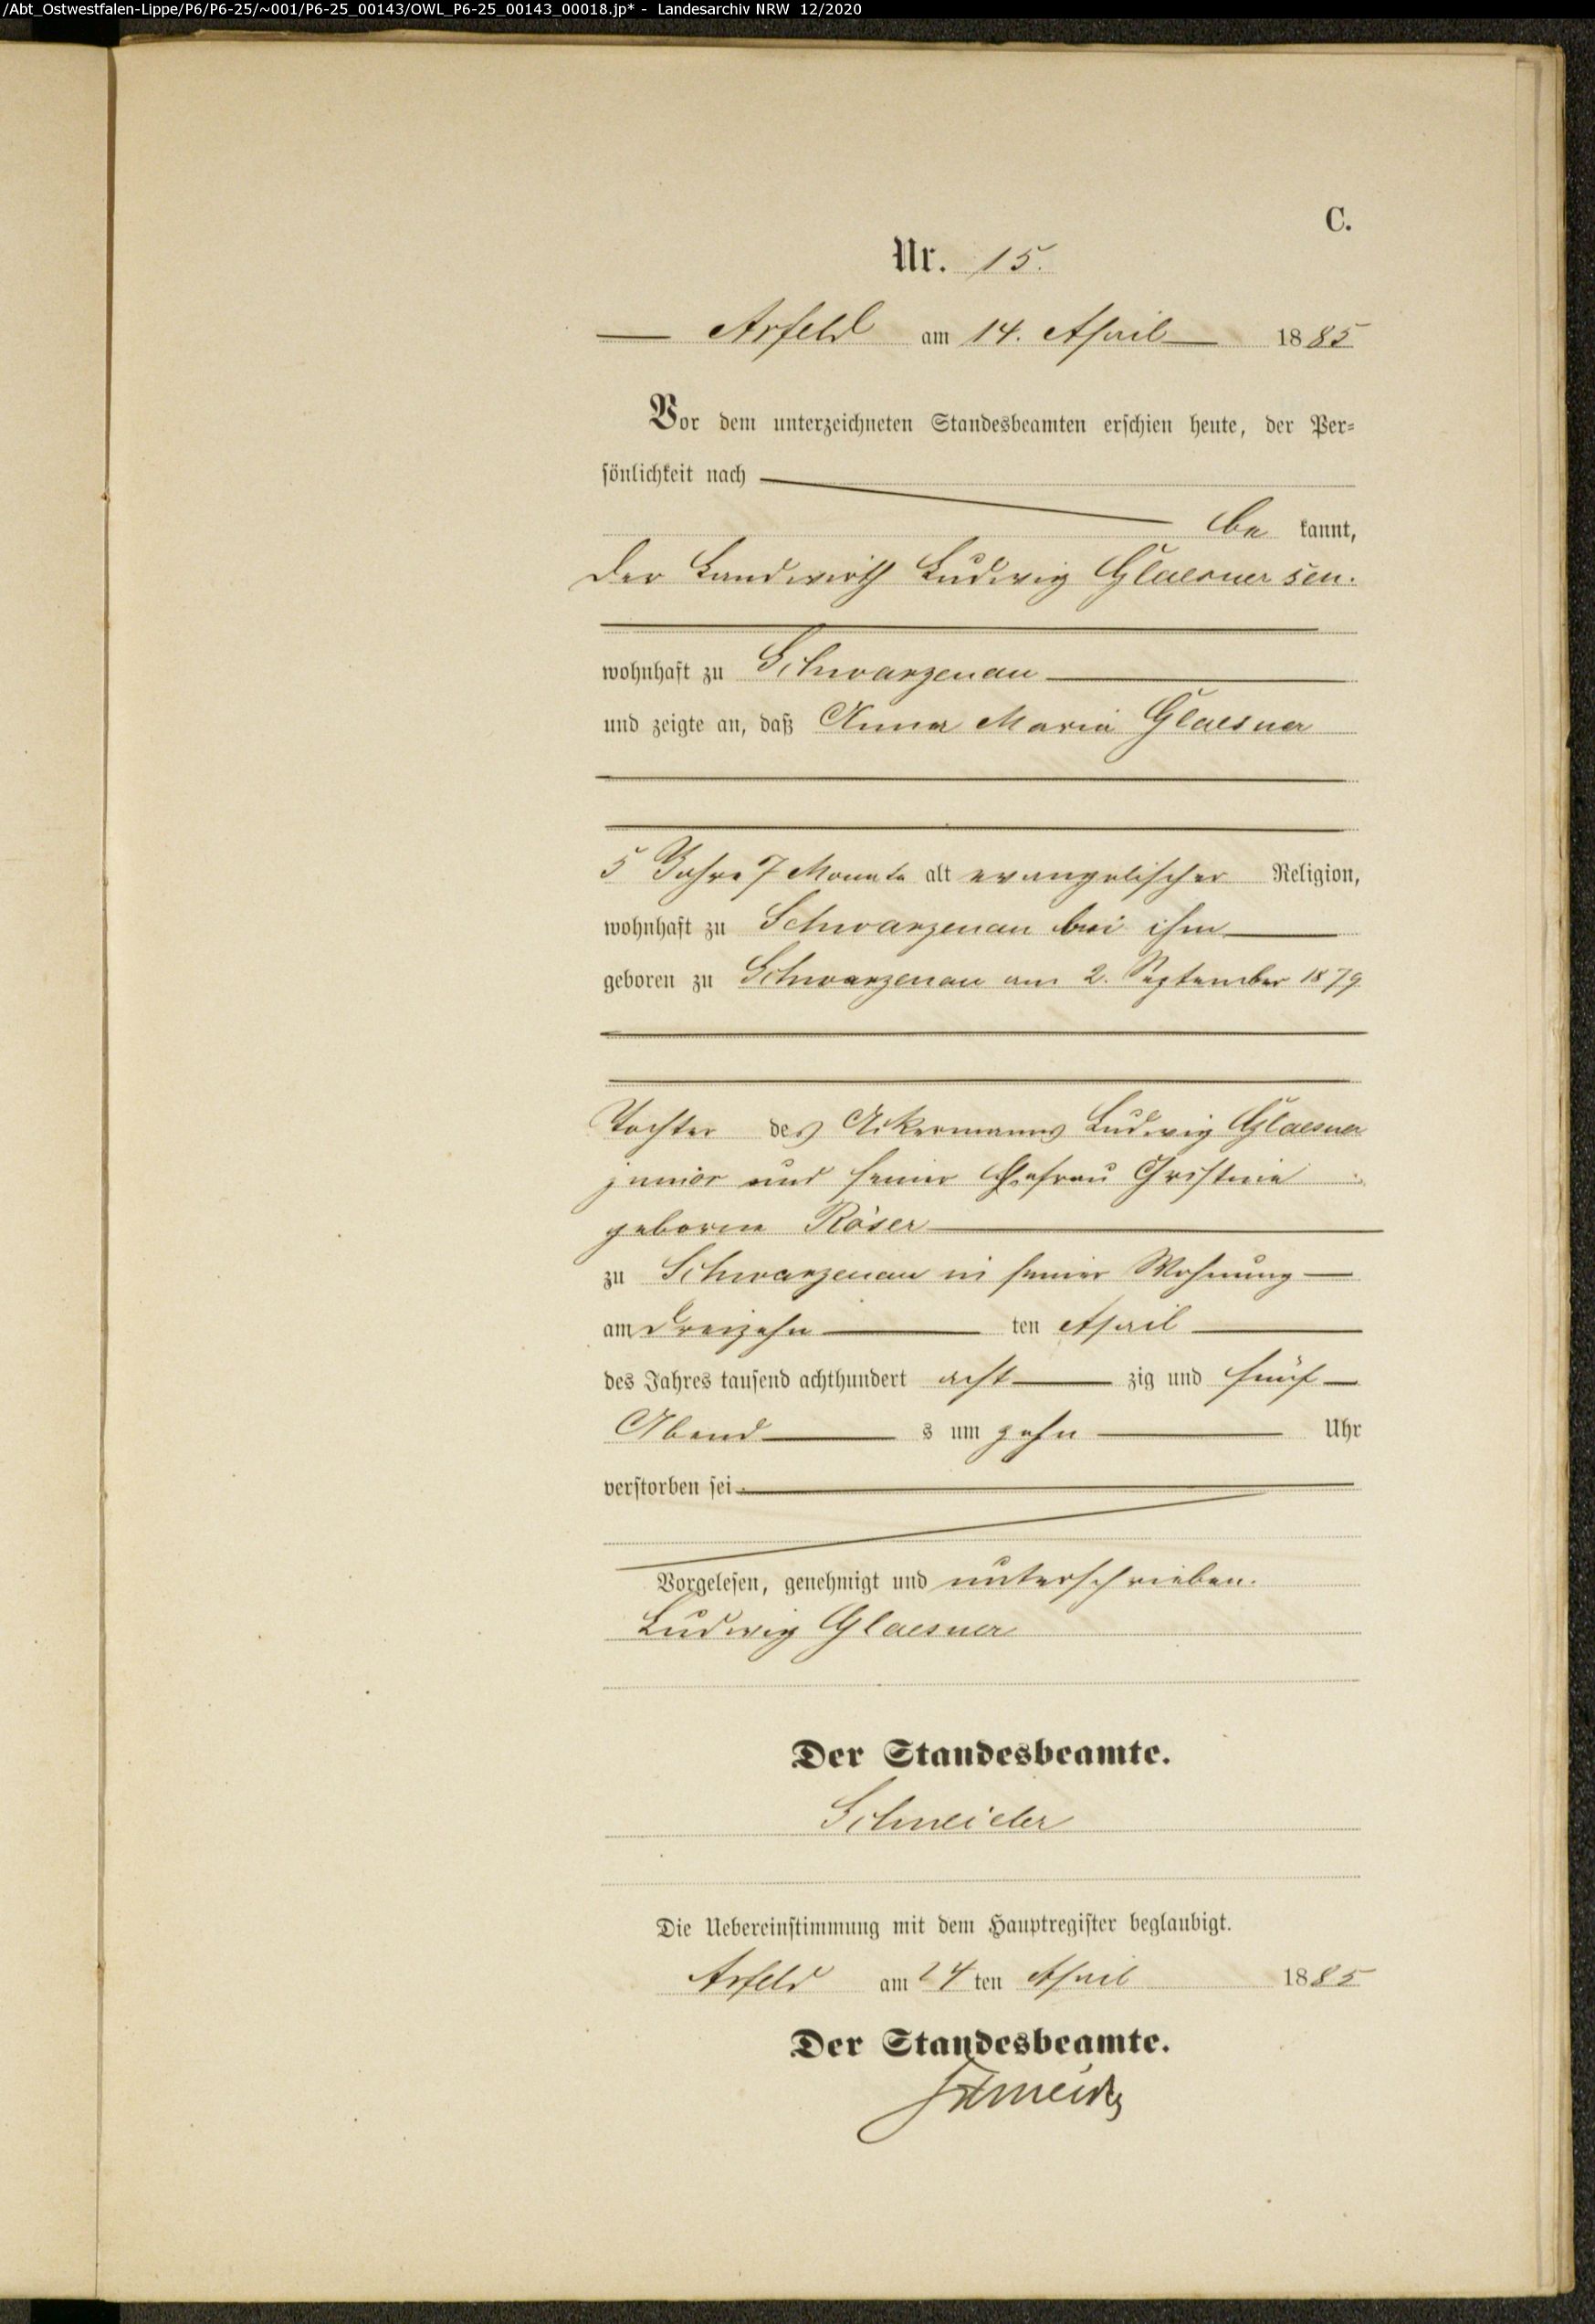 /Abt_Ostwestfalen-Lippe/P6/P6-25/~001/P6-25_00143/OWL_P6-25_00143_00018.jp* - Landesarchiv NRW 12/2020
C.
Nr. 15.
Arfeld am 14. April 1885
Vor dem unterzeichneten Standesbeamten erschien heute, der Per-
sönlichkeit nach
be kannt,
der Landwirth Ludwig Glaesner sen.
wohnhaft zu Schwarzenau
und zeigte an, daß Anna Maria Glaesner
5 Jahre 7 Monate alt evangelischer Religion,
wohnhaft zu Schwarzenau bei ihm
geboren zu Schwarzenau am 2. September 1879
Tochter des Ackermanns Ludwig Glaesner
junior und seiner Ehefrau Christine
geborne Röser
zu Schwarzenau in seiner Wohnung
am dreizehn ten April
des Jahres tausend achthundert acht zig und fünf
Abend s um zehn Uhr
verstorben sei
Vorgelesen, genehmigt und unterschrieben.
Ludwig Glaesner
Der Standesbeamte.
Schneider
Die Uebereinstimmung mit dem Hauptregister beglaubigt.
Arfeld am 14 ten April 1885
Der Standesbeamte.
Schneider